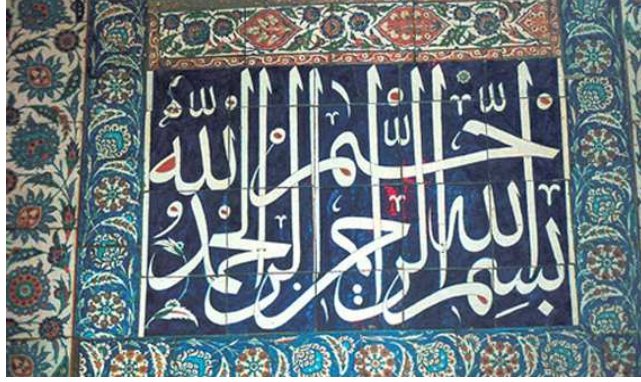 بِسم الله الرحمن الرحيم الحمد لله